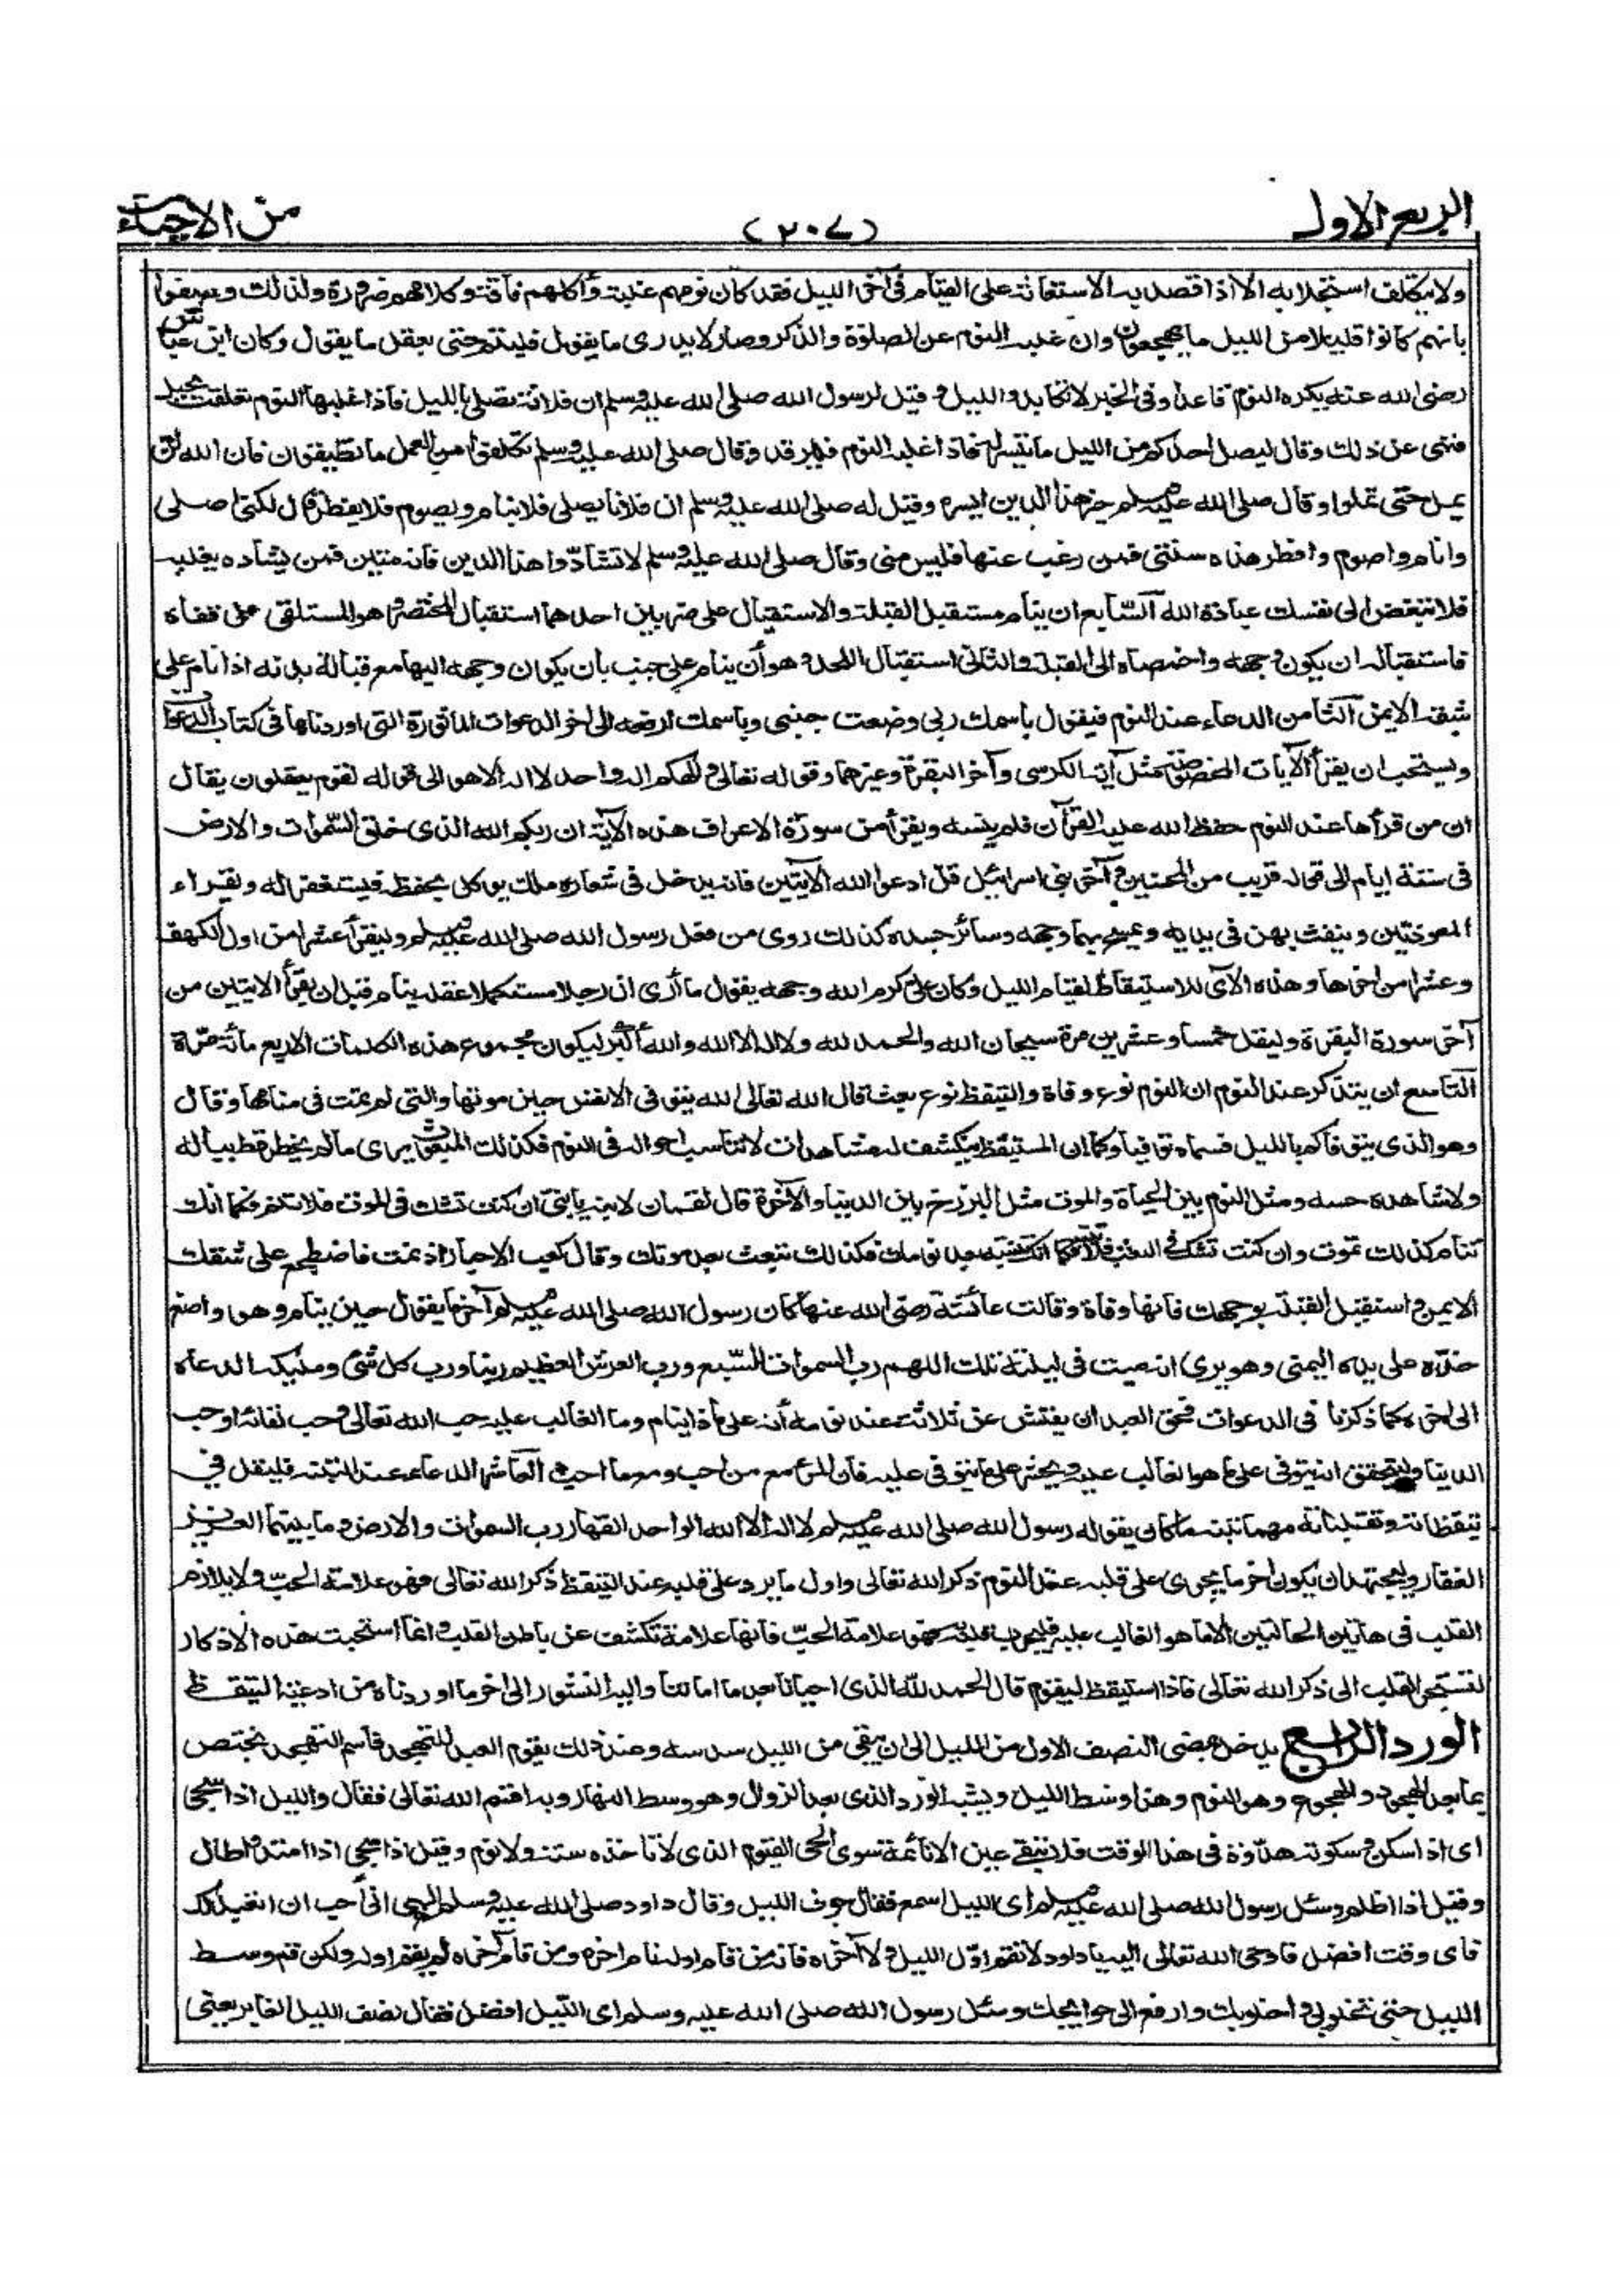 الربع الاول
(٢٠٧)
من الاحياء
ولا يتكلف استجلابه الا اذا قصد به الاستعانة على القيام فى آخر الليل فقد كان نومهم غلبة وأكلهم فاقة وكلامهم ضرورة ولذلك وصفوا
بانهم كانوا قليلا من الليل ما يهجعون وان غلبه النوم عن الصلوة والذكر وصار لا يدرى ما يقول فلينم حتى يعقل ما يقول وكان ابن عباس
رضى الله عنه يكره النوم قاعدا وفى الخبر لا تكابدوا الليل وقيل لرسول الله صلى الله عليه وسلم ان فلانة تصلى بالليل فاذا غلبها النوم تعلقت بحبل
فنهى عن ذلك وقال ليصل احدكم من الليل ما تيسر له فاذا غلبه النوم فليرقد وقال صلى الله عليه وسلم تكلفوا من العمل ما تطيقون فان الله لن
يمل حتى تملوا وقال صلى الله عليه وسلم خير هذا الدين ايسره وقيل له صلى الله عليه وسلم ان فلانا يصلى فلا ينام ويصوم فلا يفطر قال لكنى اصلى
وانام واصوم وافطر هذه سنتى فمن رغب عنها فليس منى وقال صلى الله عليه وسلم لا تشادّوا هذا الدين فانه متين فمن يشاده يغلبه
فلا تبغض الى نفسك عبادة الله السّابع ان ينام مستقبل القبلة والاستقبال على ضربين احدهما استقبال المحتضر وهو المستلقى على قفاه
فاستقباله ان يكون وجهه واخمصاه الى القبلة والثانى استقبال اللحد وهو أن ينام على جنب بان يكون وجهه اليها مع قبالة بدنه اذا نام على
شقه الايمن الثامن الدعاء عند النوم فيقول باسمك ربى وضعت جنبى وباسمك ارفعه الى اخر الدعوات المأثورة التى اوردناها فى كتاب الدعوات
ويستحب ان يقرأ الآيات المخصوصة مثل آية الكرسى وآخر البقرة وغيرهما وقوله تعالى والهكم اله واحد لا اله الا هو الى قوله لقوم يعقلون يقال
ان من قرأها عند النوم حفظ الله عليه القرآن فلم ينسه ويقرأ من سورة الاعراف هذه الآية ان ربكم الله الذى خلق السّموات والارض
فى ستة ايام الى قوله قريب من المحسنين وآخر بنى اسرائيل قل ادعوا الله الآيتين فانه يدخل فى شعاره ملك يوكل بحفظه فيستغفر له ويقراء
المعوذتين وينفث بهن فى يديه ويمسح بهما وجهه وسائر جسده كذلك روى من فعل رسول الله صلى الله عليه وسلم وليقرأ عشرا من اول الكهف
وعشرا من اخرها وهذه الآى للاستيقاظ لقيام الليل وكان على كرم الله وجهه يقول ما أرى ان رجلا مستكملا عقله ينام قبل ان يقرأ الآيتين من
آخر سورة البقرة وليقل خمسا وعشرين مرة سبحان الله والحمد لله ولا اله الا الله والله أكبر ليكون مجموع هذه الكلمات الاربع مائة مرّة
التاسع ان يتذكر عند النوم ان النوم نوع وفاة والتيقظ نوع بعث قال الله تعالى الله يتوفى الانفس حين موتها والتى لم تمت فى منامها وقال
وهو الذى يتوفاكم بالليل فسماه توفيا وكما ان المستيقظ ينكشف له مشاهدات لا تناسب احواله فى النوم فكذلك المبعوث يرى ما لم يخطر قط بباله
ولا شاهده حسه ومثل النوم بين الحياة والموت مثل البرزخ بين الدنيا والآخرة قال لقمان لابنه يا بنى ان كنت تشك فى الموت فلا تنم فكما انك
تنام كذلك تموت وان كنت تشك فى البعث فلا تنتبه فكما انك تنتبه بعد نومك فكذلك تبعث بعد موتك وقال كعب الاحبار اذ نمت فاضطجع على شقك
الايمن واستقبل القبلة بوجهك فانها وفاة وقالت عائشة رضى الله عنها كان رسول الله صلى الله عليه وسلم آخر ما يقول حين ينام وهو واضع
خدّه على يده اليمنى وهو يرى انه ميت فى ليلته تلك اللهم رب السموات السّبع ورب العرش العظيم ربنا ورب كل شئ ومليكه الدعاء
الى اخره كما ذكرنا فى الدعوات فحق العبد ان يفتش عن ثلاثة عند نومه أنه على ماذا ينام وما الغالب عليه حب الله تعالى وحب لقائه او حب
الدنيا وليتحقق انه يتوفى على ما هو الغالب عليه ويحشر على ما يتوفى عليه فان المرء مع من احب ومع ما احب العاشر الدعاء عند التنبه فليقل فى
تيقظاته وتقلباته مهما تنبه ما كان يقوله رسول الله صلى الله عليه وسلم لا اله الا الله الواحد القهار رب السموات والارض وما بينهما العزيز
الغفار وليجتهد ان يكون اخر ما يجرى على قلبه عند النوم ذكر الله تعالى واول ما يرد على قلبه عند التيقظ ذكر الله تعالى فهو علامة الحبّ ولا يلازم
القلب فى هاتين الحالتين الا ما هو الغالب عليه فليجرب قلبه به فهو علامة الحبّ فانها علامة تكشف عن باطن القلب وانما استحبت هذه الاذكار
لتستجر القلب الى ذكر الله تعالى فاذا استيقظ ليقوم قال الحمد للّه الذى احيانا بعد ما اماتنا واليه النشور الى اخر ما اوردناه من ادعية التيقظ
الورد الرابع يدخل بمضى النصف الاول من الليل الى ان يبقى من الليل سدسه وعند ذلك يقوم العبد للتهجد فاسم التهجد يختص
بما بعد الهجود والهجوع وهو النوم وهذا وسط الليل ويشبه الورد الذى بعد الزوال وهو وسط النهار وبه اقسم الله تعالى فقال والليل اذا سجى
اى اذا سكن وسكونه هدّوه فى هذا الوقت فلا تبقى عين الا نائمة سوى الحى القيوم الذى لا تأخذه سنة ولا نوم وقيل اذا سجى اذا امتد وطال
وقيل اذا اظلم وسئل رسول الله صلى الله عليه وسلم اى الليل اسمع فقال جوف الليل وقال داود صلى الله عليه وسلم الهى انى أحب ان اتعبد لك
فاى وقت افضل فاوحى الله تعالى اليه يا داود لا تقم اوّل الليل ولا آخره فانه من قام اوله نام اخره ومن قام آخره لم يقم اوله ولكن قم وسط
الليل حتى تخلو بى واخلو بك وارفع الى حوائجك وسئل رسول الله صلى الله عليه وسلم اى الليل افضل فقال نصف الليل الغابر يعنى